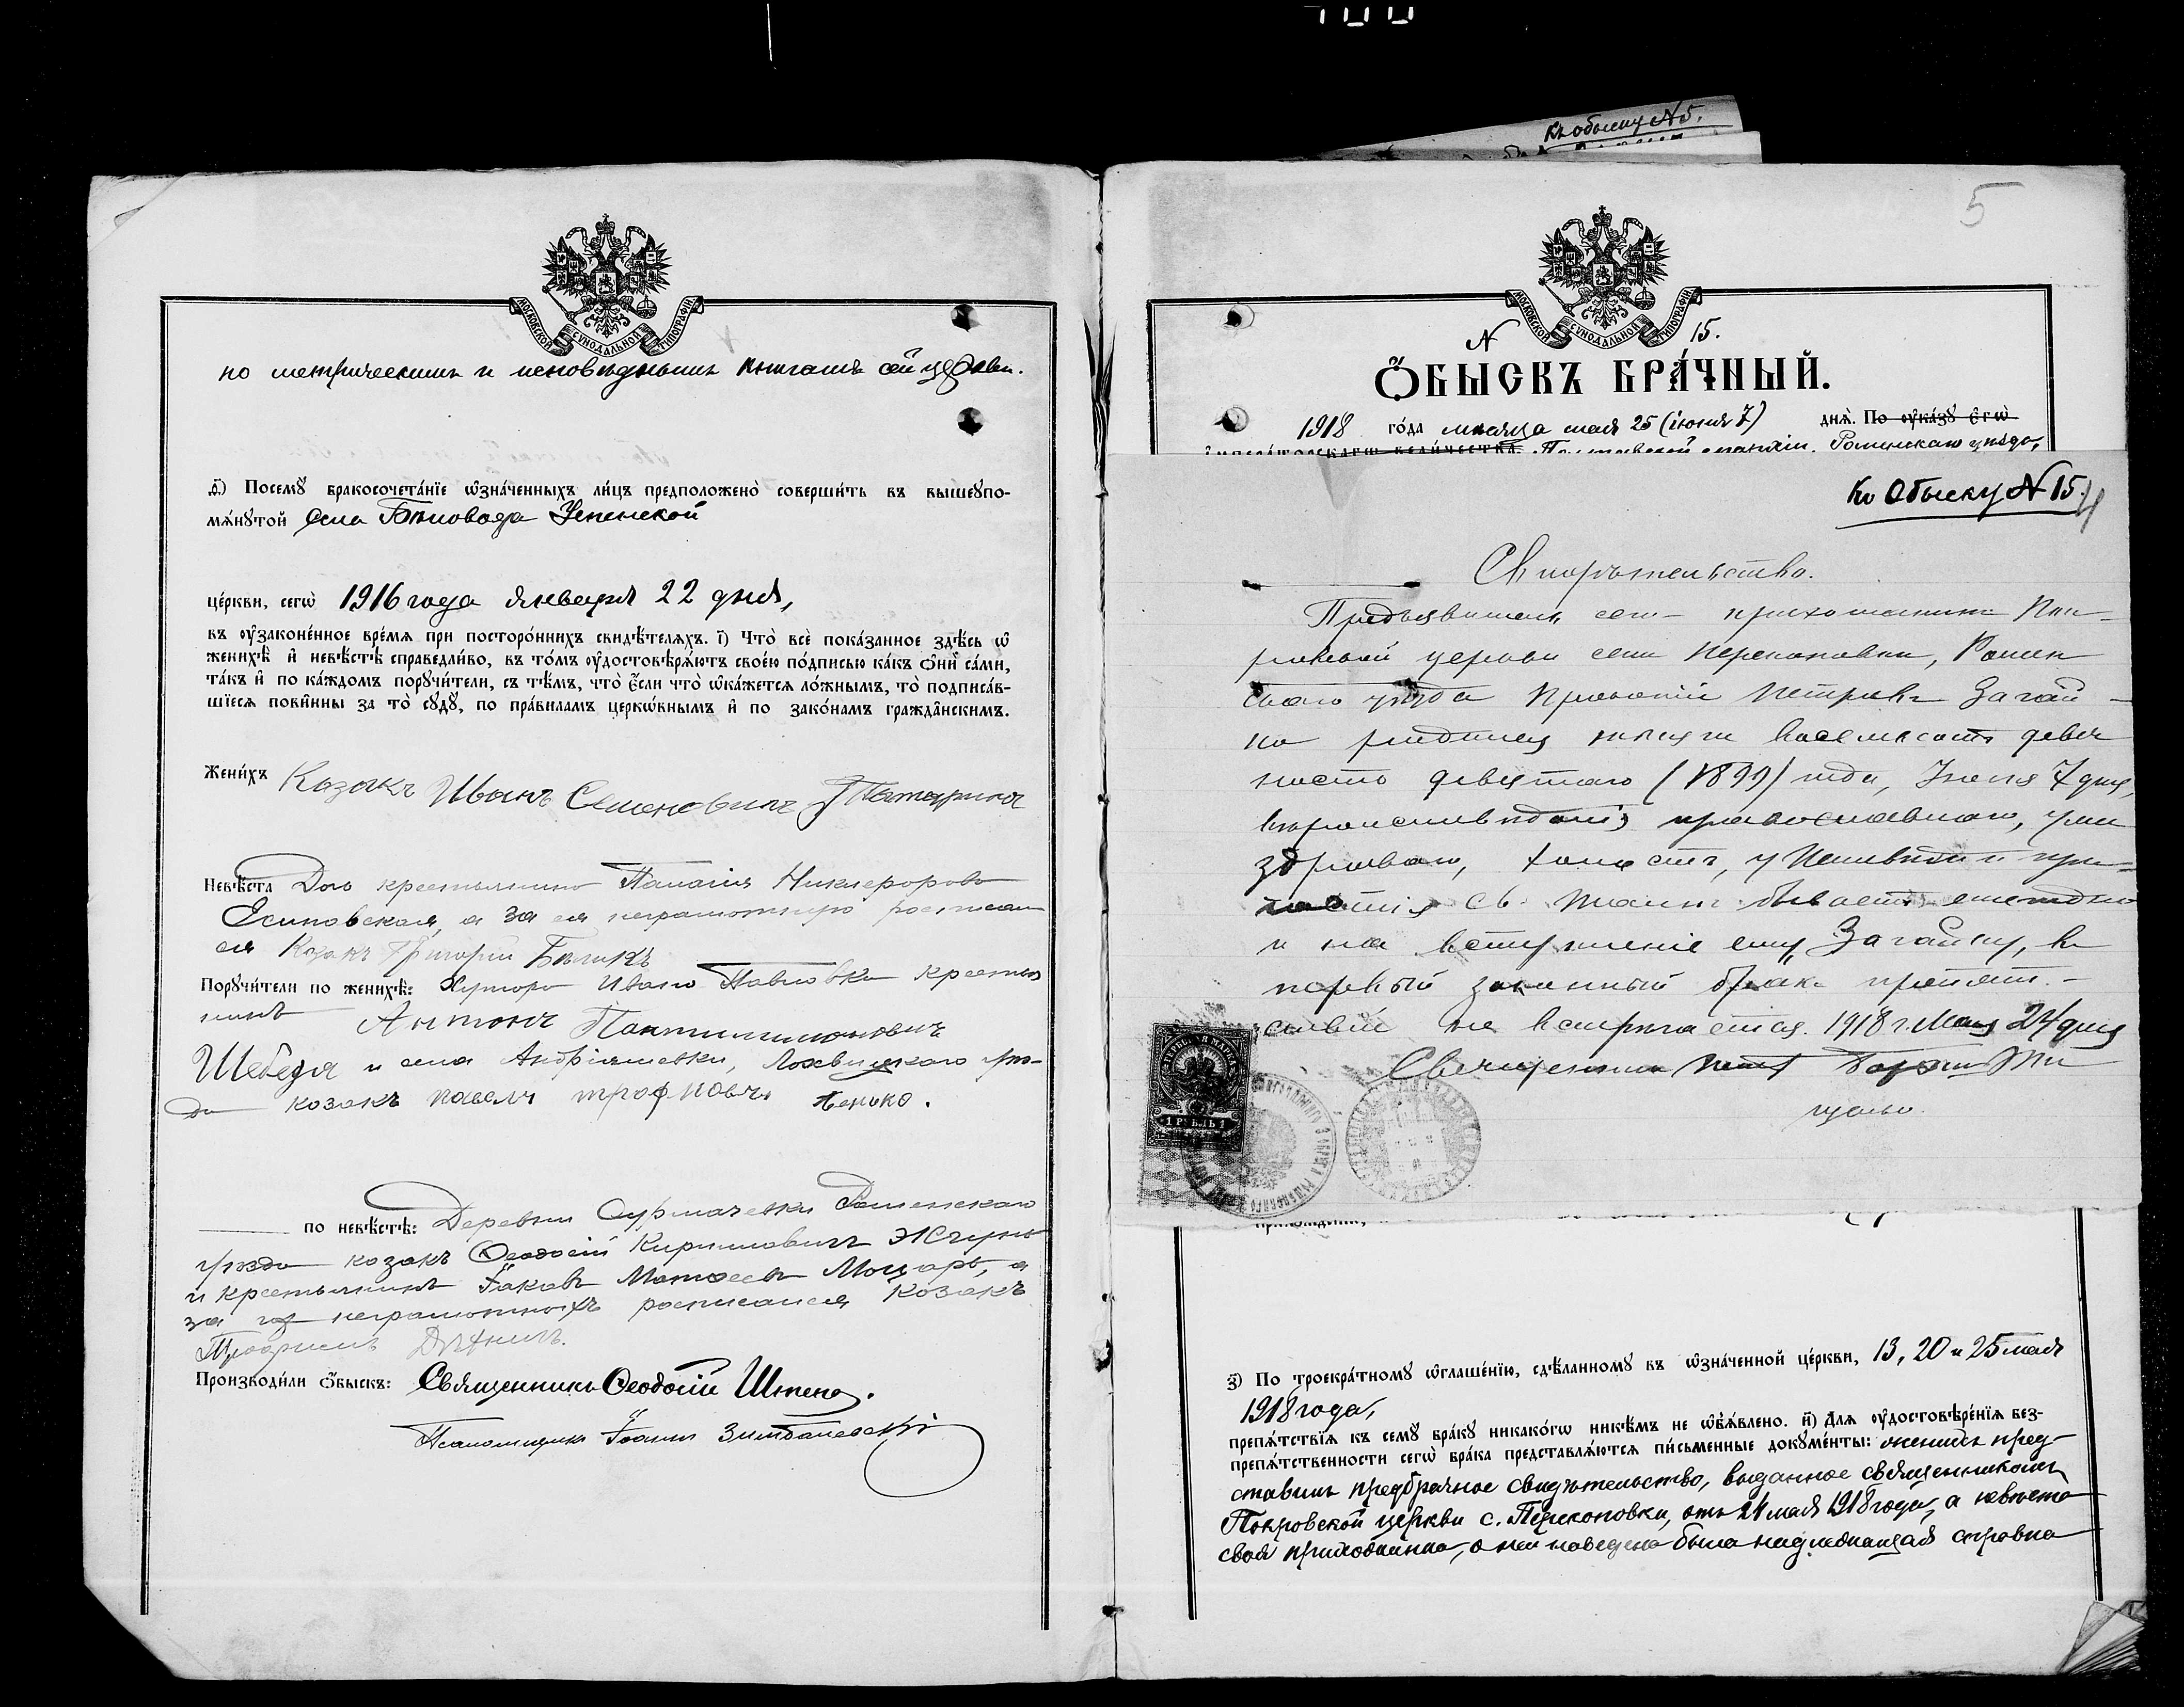 къ обыску №5.
5
МОСКОВСКОЙ СѴНОДАЛЬНОЙ ТИПОГРАФІИ
по метрическимъ и исповѣднымъ книгамъ сей церкви.
ѳ҃) Посемꙋ бракосочета́нїе ѡ҆зна́ченныхъ ли́цъ предположено̀ соверши́ть въ вышеꙋпо-
мѧ́нꙋтой села Бѣловода Успенской
це́ркви, сегѡ̀ 1916 года января 22 дня,
въ ᲂу҆зако́ненное вре́мѧ при посторо́ннихъ свидѣ́телѧхъ. і҃) Что̀ всѐ пока́занное здѣ́сь ѡ҆
женихѣ̀ и҆ невѣ́стѣ справедли́во, въ то́мъ ᲂу҆достовѣрѧ́ютъ свое́ю по́дписью ка́къ ѻ҆нѝ са́ми,
та́къ и҆ по ка́ждомъ порꙋчи́тели, съ тѣ́мъ, что̀ є҆́сли что̀ ѡ҆ка́жетсѧ ло́жнымъ, то̀ подписа́в-
шїесѧ пови́нны за то̀ сꙋдꙋ̀, по пра́виламъ церко́внымъ и҆ по зако́намъ гражда́нскимъ.
Жени́хъ Козакъ Иванъ Семеновичъ
Невѣ́ста Дочь крестьянина Пелагія Никифорова
Есиповская, а за ея неграмотную росписал
ся Козакъ Григорій Бѣликъ
Порꙋчи́тели по женихѣ̀: Хутора Ивано Павловки крестья
нинъ Антонъ Пантилимоновичъ
Шебеда и села Андріяшевки, Лохвицкаго уѣз-
да козакъ Павелъ
по невѣ́стѣ: Деревни Сурмачевки Роменскаго
уѣзда козакъ Ѳеодосій Кирилловичъ
и крестьянинъ Іаковъ Матѳеевъ Моцарь, а
за неграмотныхъ росписался Козакъ
Производи́ли ѻ҆́быскъ: Священникъ Ѳеодосій
Псаломщикъ Іоаннъ
МОСКОВСКОЙ СѴНОДАЛЬНОЙ ТИПОГРАФІИ
№ 15.
Ѻ҆́БЫСКЪ БРА́ЧНЫЙ.
1918 го́да мѣсяца мая 25 (іюня 7) днѧ̀. По ᲂу҆ка́зꙋ є҆гѡ̀
и҆мпера́торскагѡ вели́чества, Полтавской епархіи, Роменскаго уѣзда,
Къ Обыску № 15.
Свидѣтельство.
Предъявитель сего прихожанинъ Пок-
ровской церкви села Перекоповки, Ромен
скаго уѣзда Прокопій Петровъ Загай-
ко родился тысяча восемьсотъ девя
носто девятаго (1899) года, Іюня 7 дня,
вѣроисповѣданія православнаго, ума
здраваго, холостъ, у Исповѣди и при-
частія Св. Таинъ бываетъ ежегодно
и на вступленіе ему, Загайку, въ
первый законный бракъ препят-
ствій не встрѣчается. 1918 г. Мая 24 дня
Священникъ
1 РУБЛЬ 1
з҃) По троекра́тномꙋ ѡ҆глаше́нїю, сдѣ́ланномꙋ въ ѡ҆зна́ченной це́ркви, 13, 20 и 25 мая
1918 года,
препѧ́тствїѧ къ семꙋ̀ бра́кꙋ никако́гѡ никѣ́мъ не ѡ҆б̾ѧ́влено. и҃) Длѧ ᲂу҆достовѣре́нїѧ без-
препѧ́тственности сегѡ̀ бра́ка представлѧ́ютсѧ пи́сьменные докꙋме́нты: женихъ пред-
ставилъ предбрачное свидѣтельство, выданное священникомъ
Покровской церкви с. Перекоповки, отъ 24 мая 1918 года, а невѣста
своя прихожанка, о ней наведена была надлежащая справка